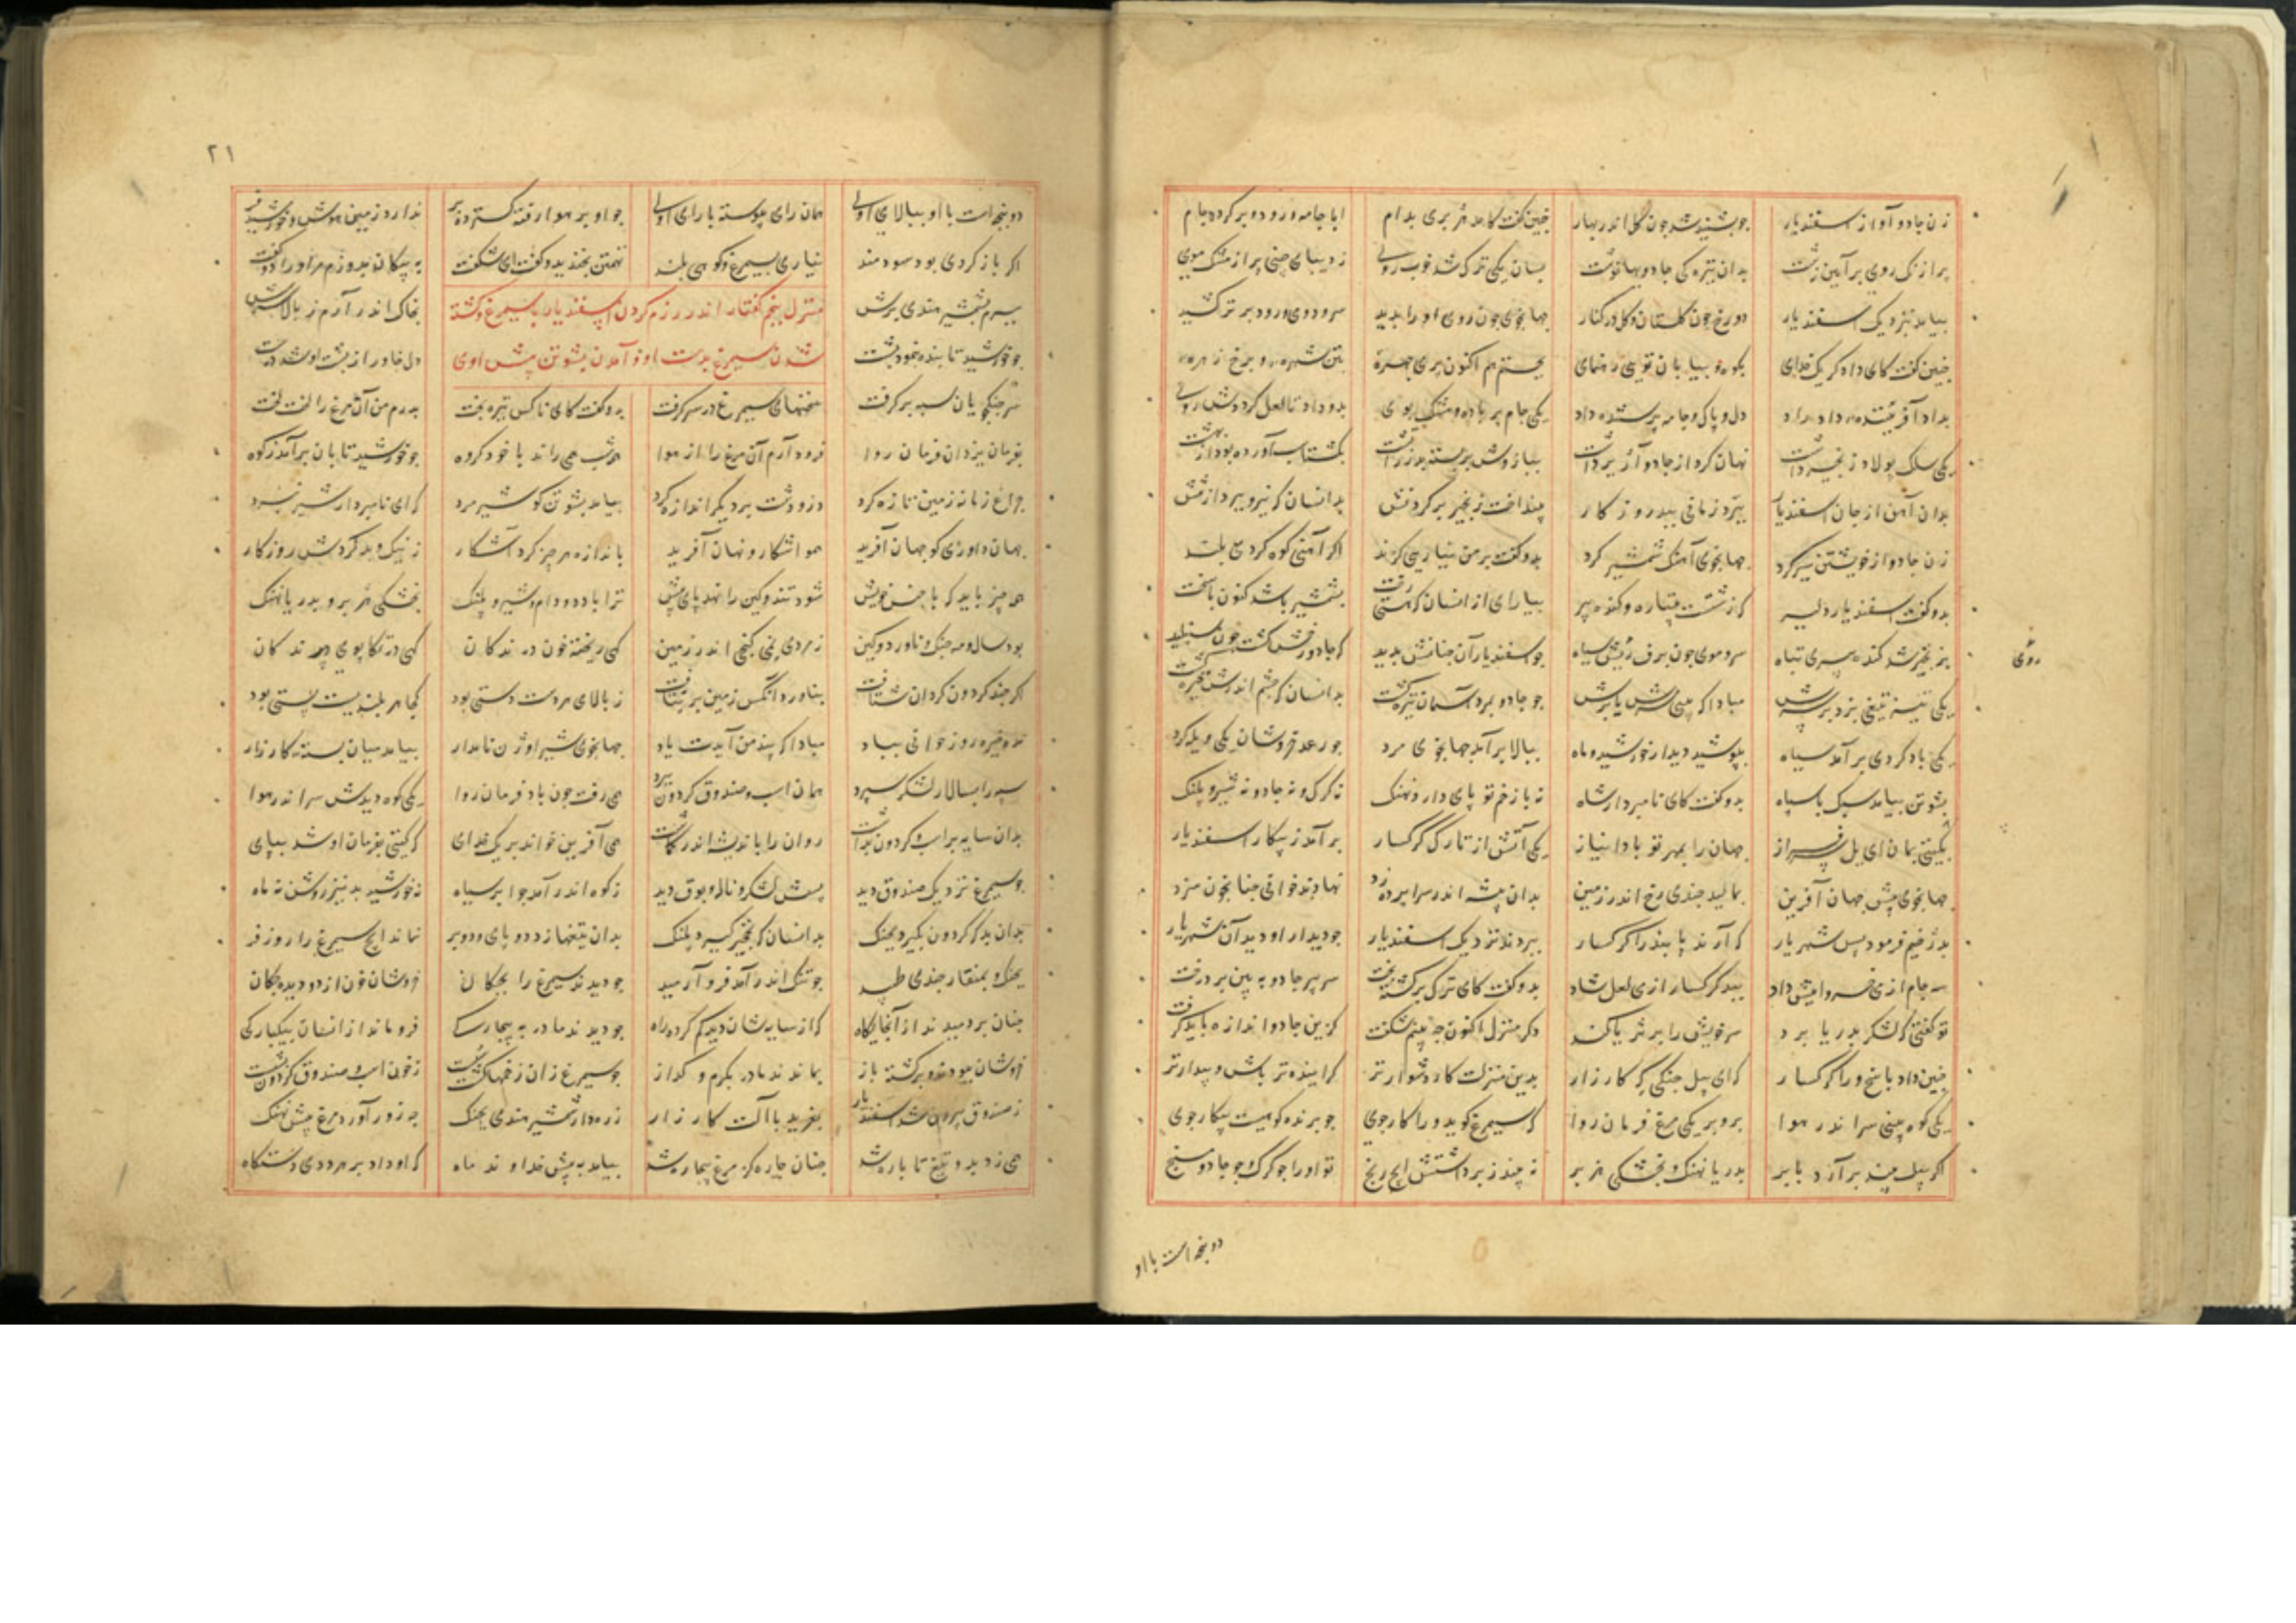 زن جادو آواز اسفندیار جو بشنید شد جون کل اندر بهار جنین کفت کامد هژبری بدام ابا جامه و رود و بر کرده جام
پر از رنک روی بر آیین زشت بدان تیره کی جادویها نوشت بسان یکی ترک شد خوب روی ز دیبای چینی پر از مشک موی
بیامد بنزدیک اسفندیار دو رخ جون کلستان و کل در کنار جهانجوی جون روی او را بدید سرود و می و رود برتر کشید
جنین کفت کای دادکر یک خدای بکوه و بیابان توی رهنمای بجستم هم اکنون پری جهره بتن شهره و مرخ زهره
بداد آفریننده داد راد دل و پاک و جامه پرستنده داد یکی جام پر باده مشک بوی بدو داد تا لعل کردش روی
یکی پولاد زنجیر داشت نهان کرد از جادو آژیر داشت ببازوش بر بسته بد زردشت بکشتاسب آورده بود از بهشت
بدان آهن از جان اسفندیار نبردی زمانی ببد روزکار بینداخت زنجیر بر کردنش بدانسان که نیرو ببرد از تنش
زن جادو از خویشتن شیر کرد جهانجوی آهنک شمشیر کرد بدو کفت بر من نیاری کزند اکر آهنی کوه کردی بلند
بدو کفت اسفندیار دلیر که زشت پتیاره کنده پیر بیارای از انسان که هستی رخت بشمشیر باشد کنون پاسخت
بزنجیر شد کنده پیری تباه سر و موی جون برف رنکش سیاه جو اسفندیار آن جنانش بدید که جادو
روی
یکی تیز تیغی بزد بر سرش مبادا که بینی سرش یا برش جو جادو بمرد آسمان تیره کشت بدانسان که جشم اندرش خیره کشت
یکی باد کردی بر آمد سیاه بپوشید دیدار خورشید و ماه ببالا بر آمد جهانجوی مرد جو رعد خروشان یکی ویله کرد
بشوتن بیامد سبک با سپاه بدو کفت کای نامبردار شاه نه با زخم تو پای دارد نهنک نه کرک و نه جادو نه شیر و پلنک
بکیتی بمان ای یل سرفراز جهان را بمهر تو بادا نیاز یکی آتش از تارک کرکسار بر آمد ز پیکار اسفندیار
جهانجوی پیش جهان آفرین بمالید جندی رخ اندر زمین بدان بیشه اندر سرا پرده زد نهادند خوانی جنانجون سزد
بدژخیم فرمود پس شهریار که آرند پا بند را کرکسار ببردند نزدیک اسفندیار جو دیدار او دید آن شهریار
سه جام از می خسروانیش داد ببد کرکسار از می لعل شاد بدو کفت کای ترک برکشته بخت سر پیر جادو به بین بر درخت
تو کفتی که لشکر بدریا برد سر خویش را بر ثریا کشد دکر منزل اکنون جه بینم شکفت کزین جادو اندازه باید کرفت
جنین داد پاسخ ورا کرکسار که ای پیل جنکی که کارزار بدین منزلت کار دشوارتر کراینده تر باش و بیدارتر
یکی کوه بینی سر اندر هوا برو بر یکی مرغ فرمان روا که سیمرغ کوید ورا کارجوی جو برنده کوهیست پیکارجوی
اکر پیل بیند بر آرد بابر بدریا نهنک و بخشکی هژبر نه بیند ز برداشتنش ایج رنج تو او را جو کرک و جو جادو مسنج
دو بچه است با او
۲۱
دو بچه است با او ببالای اوی همان رای پیوسته با رای اوی جو او بر هوا رفت و کسترد پر ندارد زمین هوش و خورشید فر
اکر باز کردی بود سودمند نیاری بسیمرغ و کوهی بلند تهمتن بخندید و کفت ای شکفت به پیکان بدوزم مر او را دو کفت
ببرم بشمشیر هندی برش منزل پنجم کفتار اندر رزم کردن اسفندیار با سیمرغ و کشته بخاک اندر آرم ز بالا سرش
جو خورشید تابنده بنمود پشت شدن سیمرغ بدست او و آمدن بشوتن پیش اوی دل خاور از پشت او شد درشت
سر جنکجویان سپه برکرفت سخنهای سیمرغ در سر کرفت بدو کفت کای ناکس تیره بخت بدرم من آن مرغ را لخت لخت
بفرمان یزدان فرمان روا فرود آرم آن مرغ را از هوا همه شب همی راند با خود کروه جو خورشید تابان بر آمد ز کوه
جراغ زمانه زمین تازه کرد در و دشت بر دیکر اندازه کرد بیامد بشوتن کو شیر مرد که ای نامبردار شیر نبرد
جهان داوری کو جهان آفرید هم آشکار و نهان آفرید باندازه هر جیز کرد آشکار ز نیک و بد کردش روزکار
هر جیز باید که با جنس خویش شود تند و کین را نهد پای پیش ترا با دد و دام و شیر و پلنک بخشکی هژبر و بدریا نهنک
بود سال و مه جنک و ناورد و کین ز مردی نمی کنجی اندر زمین کهی ریخته خون درندکان کهی در تکاپوی پرندکان
اکر جند کردون کردان شتافت بناورد آنکس زمین بر نتافت ز بالای هر دست دستی بود کجا هر بلندیست پستی بود
مبادا که پند من آیدت یاد جهانجوی شیر اوژن نامدار بیامد میان بسته کارزار
سپه را بسالار لشکر سپرد همان اسب و صندوق کردون ببرد همی رفت جون باد فرمان روا یکی کوه دیدش سر اندر هوا
بدان سایه بر اسب و کردون بداشت روان را باندیشه اندر کماشت همی آفرین خواند بر یک خدای که کیتی بفرمان او شد بپای
جو سیمرغ نزدیک صندوق دید پسش لشکر و ناله و بوق دید ز کوه اندر آمد جو ابر سیاه نه خورشید بد نیز روشن نه ماه
بدان بد که کردون بکیرد بچنک بدانسان که نخجیر کیرد پلنک بدان تیغها زد دو پای و دو پر نماند ایج سیمرغ را روز فر
بچنک و بمنقار جندی طپید جو تنک اندر آمد فرو آرمید جو دیدند سیمرغ را بچکان خروشان و خون از دو دیده جکان
جنان بر دمیدند از آنجایکاه که از سایه شان دیده کم کرد راه جو دیدند مادر به بیچارکی فرو ماند از انسان بیکبارکی
خروشان ببودند و برکشته باز بماندند مادر بکرم و کداز جو سیمرغ زان زخمها کشت سست ز خون اسب و صندوق کردون بشست
ز صندوق بیرون شد اسفندیار بغرید با آلت کارزار زره دار و شمشیر هندی بچنک جه زور آورد مرغ پیش نهنک
همی زد بدو تیغ تا پاره شد جنان جاره کر مرغ بیجاره شد بیامد به پیش خداوند ماه که او داد بر هر ددی دستکاه